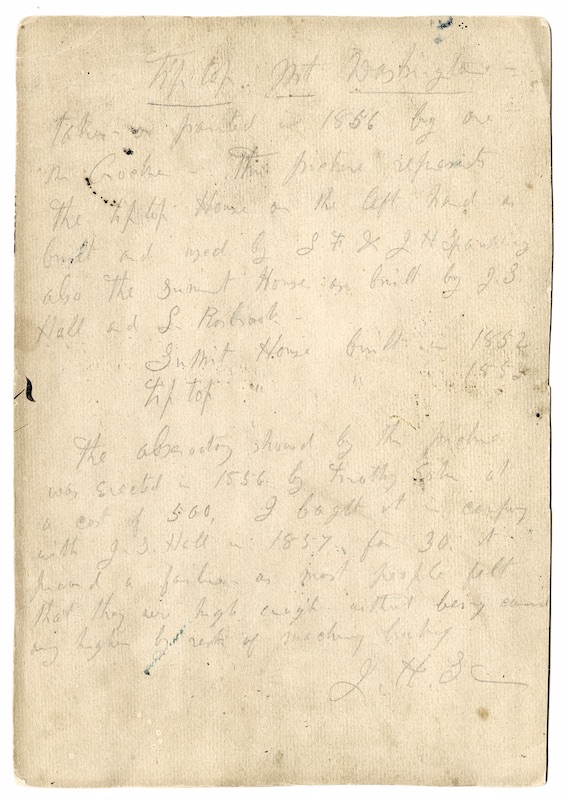 Tip top Mt Washington -
taken or painted in 1856 by one
Mr - This picture represents
the tip top House on the left hand as
built and used by S F & J H Spaulding
also the Summit House as built by J. S.
Hall and L. Rosbrook -
Summit House built in 1852
tip top " " 1853
The observatory showed by the picture
was erected in 1856 by Timothy at
a cost of 500, I bought it in company
with J. S. Hall in 1857 for 30. it
proved a failure as most people felt
that they were high enough without being carried
any higher by of machinery
J. H. S